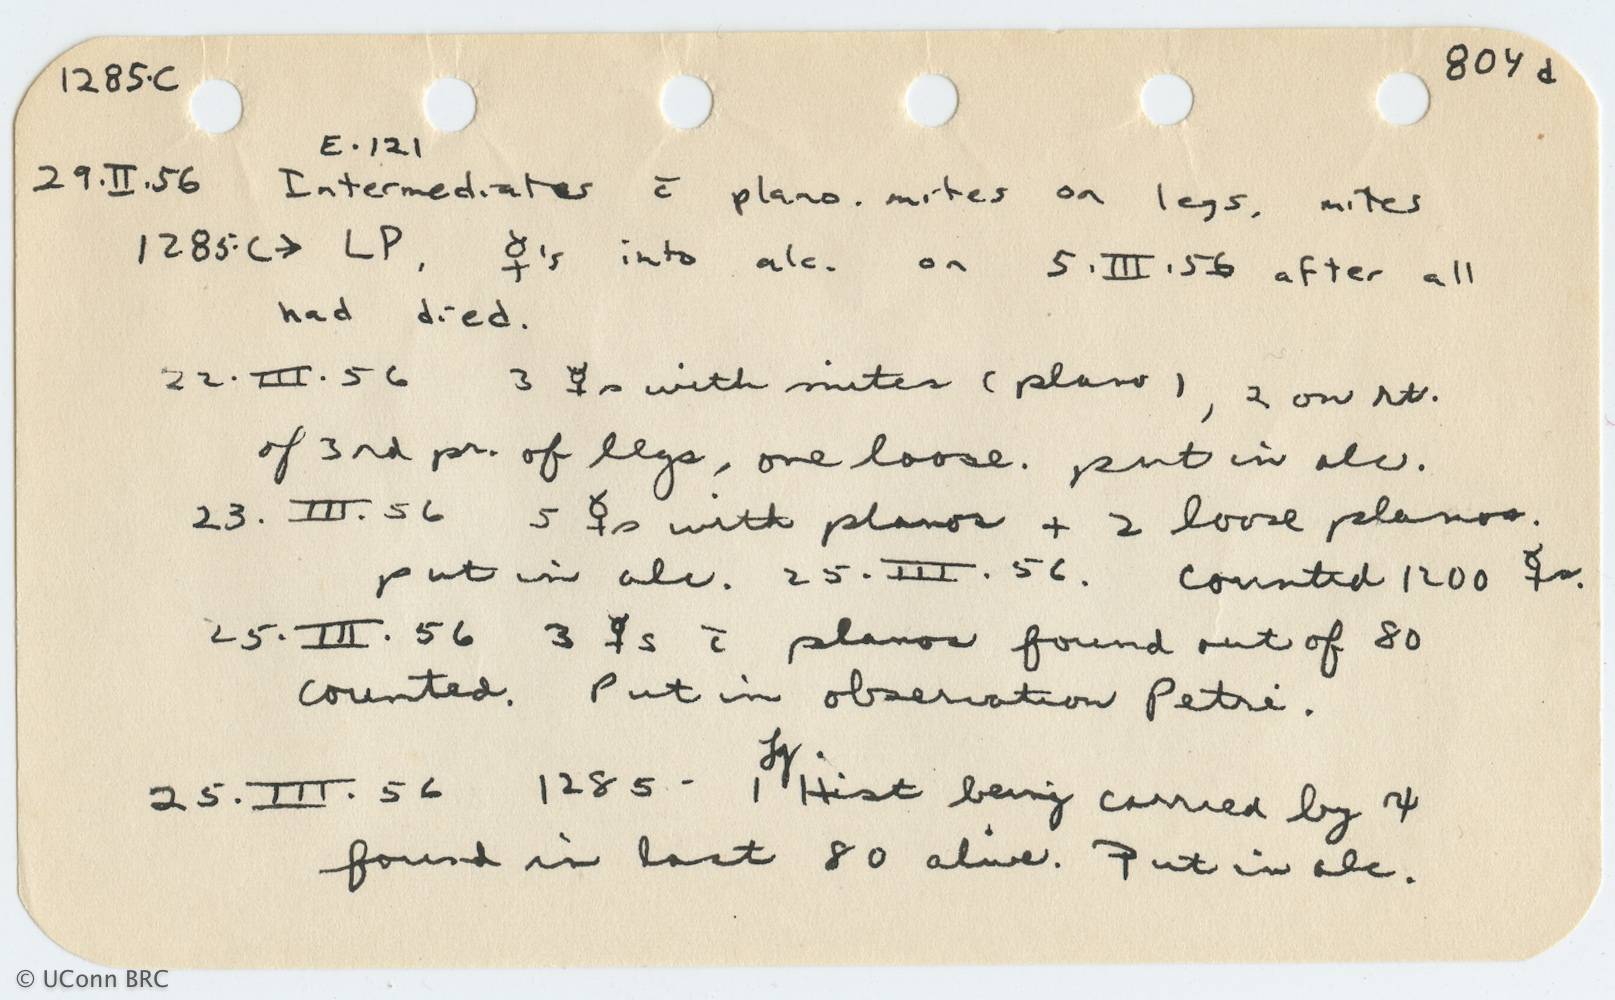 1285·C
804 d
E·121
29.II.56 Intermediates c̄ plano. mites on legs, mites
1285·C→ LP, ☿'s into alc. on 5.III.56 after all
had died.
22.III.56 3 ☿s with mites (plano), 2 on rt.
of 3rd pr. of legs, one loose. put in alc.
23.III.56 5 ☿s with planos + 2 loose planos.
put in alc. 25.III.56. Counted 1200 ☿s.
25.III.56 3 ☿s c̄ planos found out of 80
counted. Put in observation Petri.
lg.
25.III.56 1285- 1 Hist being carried by
found in last 80 alive. Put in alc.
© UConn BRC